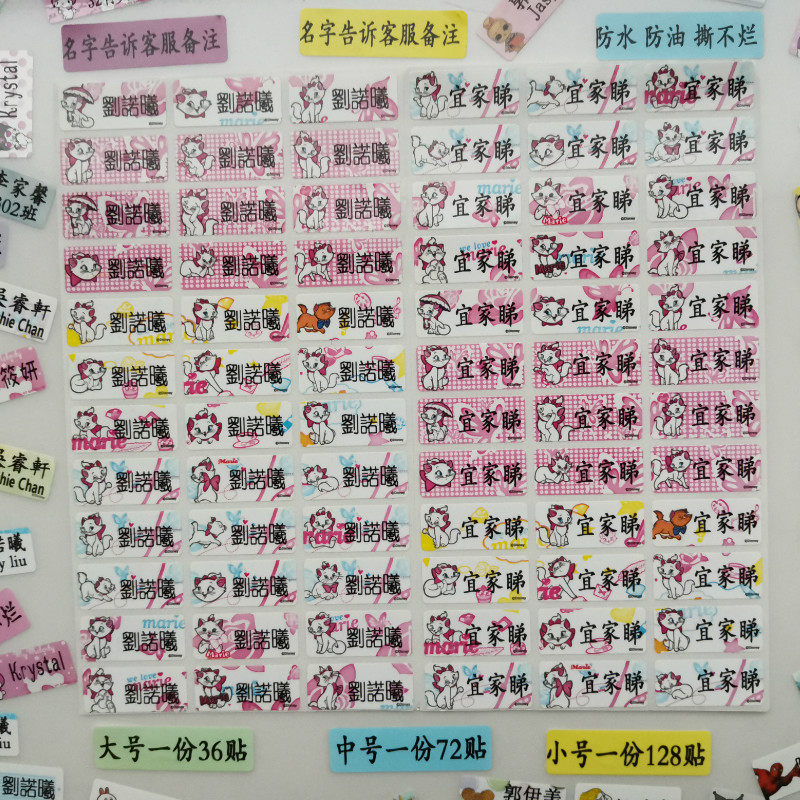 Jas
名字告诉客服备注
名字告诉客服备注
防水 防油 撕不烂
Krystal
劉諾曦 劉諾曦 劉諾曦 宜家睇 宜家睇 宜家睇
劉諾曦 劉諾曦 劉諾曦 宜家睇 宜家睇 宜家睇
李家馨
802班
劉諾曦 劉諾曦 劉諾曦 宜家睇 宜家睇 宜家睇
劉諾曦 劉諾曦 劉諾曦 宜家睇 宜家睇 宜家睇
吴睿軒
hie Chan
劉諾曦 劉諾曦 劉諾曦 宜家睇 宜家睇 宜家睇
筱妍
劉諾曦 劉諾曦 劉諾曦 宜家睇 宜家睇 宜家睇
劉諾曦 劉諾曦 劉諾曦 宜家睇 宜家睇 宜家睇
吴睿軒
hie Chan
劉諾曦 劉諾曦 劉諾曦 宜家睇 宜家睇 宜家睇
劉諾曦 劉諾曦 劉諾曦 宜家睇 宜家睇 宜家睇
y liu
劉諾曦 劉諾曦 劉諾曦 宜家睇 宜家睇 宜家睇
烂
劉諾曦 劉諾曦 劉諾曦 宜家睇 宜家睇 宜家睇
Krystal
劉諾曦 劉諾曦 劉諾曦 宜家睇 宜家睇 宜家睇
大号一份36贴
中号一份72贴
小号一份128贴
劉諾曦
郭伊美